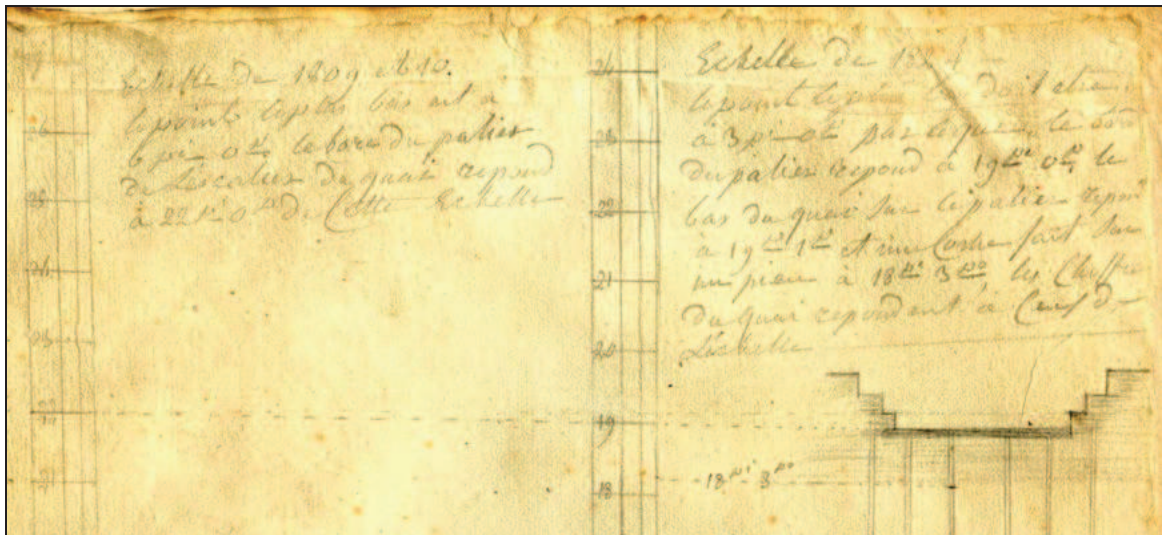 Echelle de 1809 et 10.
le point le plus bas est à
6 pi 0 po le bord du palier
de l'escalier du quai repond
à 22 pi 0 po de Cette Echelle
26
25
24
23
22
21
24
23
22
21
20
19
18
Echelle de
le point le doit etre
à 3 pi 0 po par le bord
du palier repond à 19 pi 0 po le
bas du quai sur le palier repond
à 19 pi 1 po et une Coche fait sur
un pieu à 18 pi 3 po les Chiffre
du quai repondent à Ceux de
L'echelle
18 pi 3 po